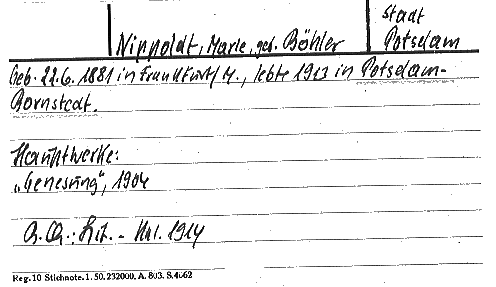 Stadt
Nippoldt, Marie, geb. Böhler
Potsdam
Geb. 22.6. 1881 in Frankfurt/M., lebte 1913 in Potsdam-
Bornstedt.
Hauptwerke:
„Genesung", 1904
A. Qu.: Lit. - Kal. 1914
Reg. 10 Stichnote. 1. 50. 232000. A. 803. S. 4062